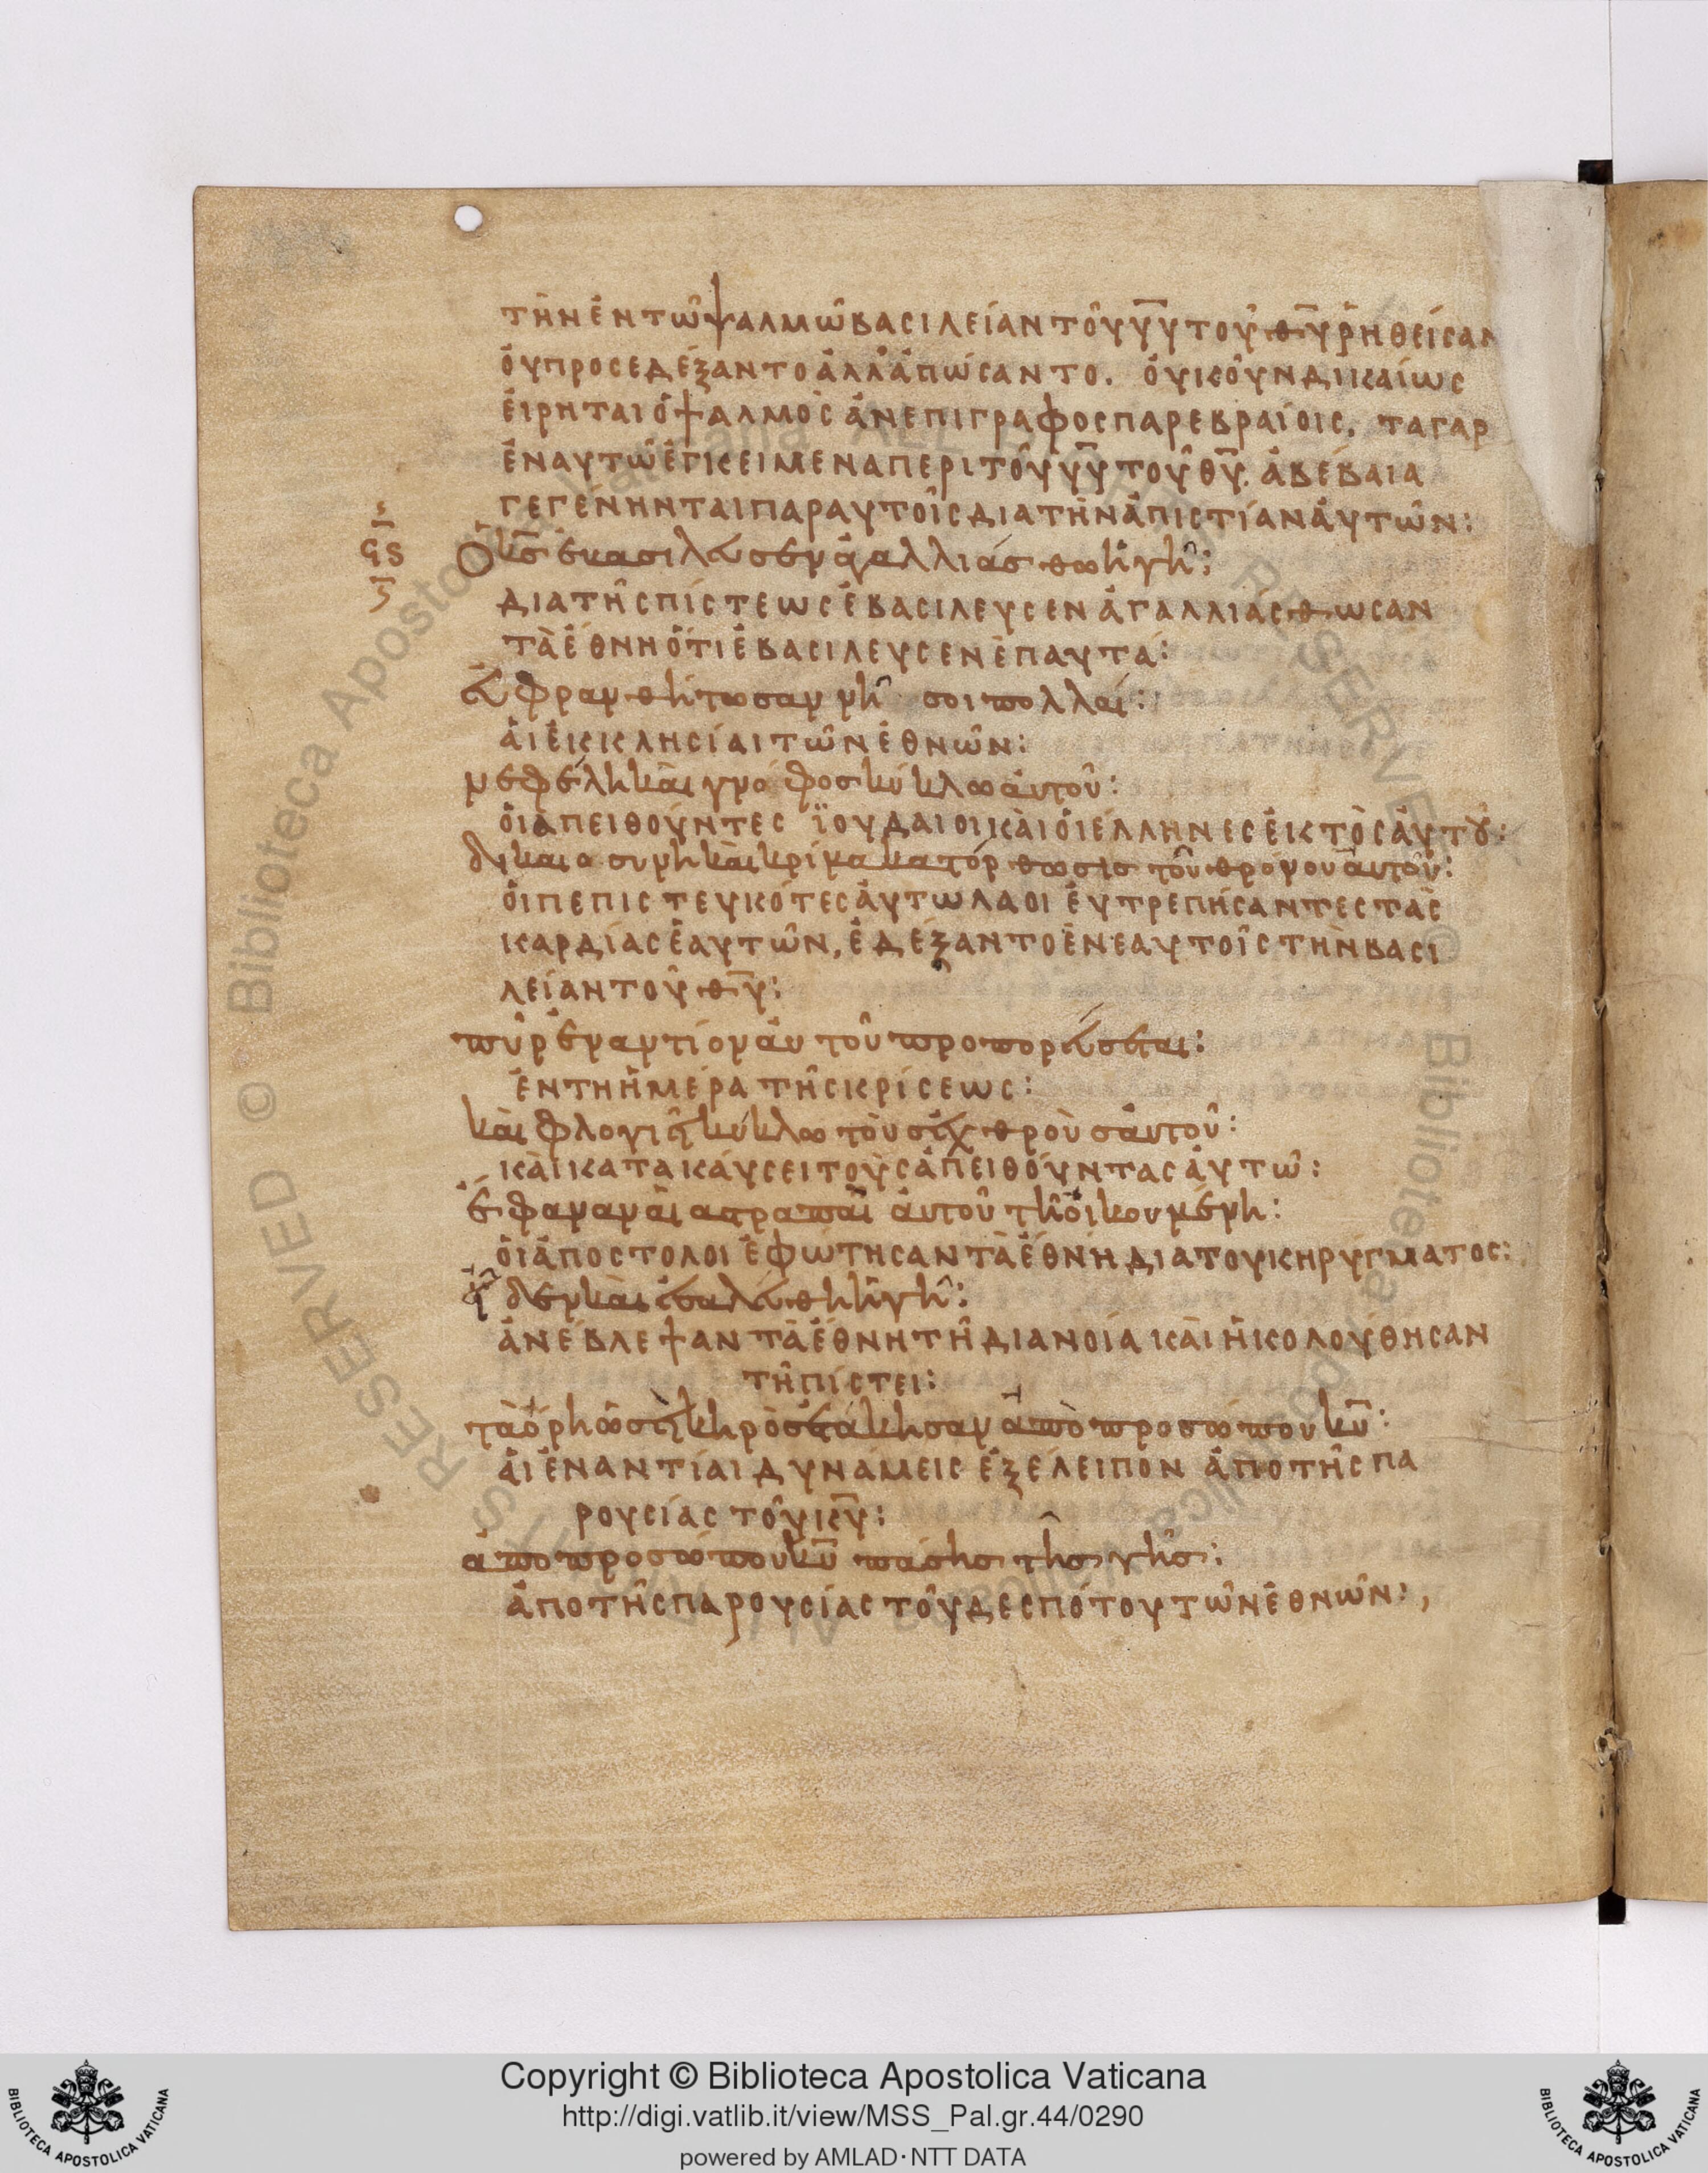 τὴν ἐν τῶ ψαλμῶ βασιλείαν τοῦ υ̅υ̅ τοῦ θ̅υ̅ ῥηθεῖσαν
ὀυ προσεδέξαντο ἀλλ' ἀπώσαντο. ὀυκοῦν δικαίως
ἐίρηται ὁ ψαλμὸς ἀνεπίγραφος παρ εβραίοις, τα γαρ
ἐν αυτῶ ἐγκείμενα περι τοῦ υ̅υ̅ τοῦ θ̅υ̅. ἀβέβαια
γεγένηνται παρ αυτοῖς δια τὴν ἀπιστίαν ἀυτῶν:
ϟϛ
Ὁ κ̅ς̅ ἐβασίλευσεν ἀγαλλιάσθω ἡ γῆ:
δια τῆς πίστεως ἐβασίλευσεν ἀγαλλιάσθωσαν
τὰ ἔθνη ὅτι ἐβασίλευσεν ἐπ αυτά:
ἐυφρανθήτωσαν νῆσοι πολλαί:
ἁι ἐκκλησίαι τῶν ἐθνῶν:
νεφέλη κὰι γνόφος κύκλω ἀυτοῦ:
ὁι απειθούντες ϊουδαιοι κὰι ὁι ελληνες ἐκτὸς ἀυτοῦ:
δικαιοσυνη κὰι κρίμα κατόρθωσις τοῦ θρόνου ἀυτοῦ:
ὁι πεπιστευκότες ἀυτω λαοι ἐυτρεπήσαντες τὰς
καρδίας ἑαυτῶν, ἐδέξαντο ἐν εαυτοῖς τὴν βασι
λείαν τοῦ θ̅υ̅:
πῦρ ἐναντίον ἀυτοῦ προπορέυσεται:
ἐν τη ἡμέρα τῆς κρίσεως:
κὰι φλογιεῖ κύκλω τὸυς ἐχθροὺς ἀυτοῦ:
κὰι κατακάυσει τοὺς ἀπειθούντας ἀυτῶ:
ἔφαναν ἁι αστραπαὶ ἀυτοῦ τῆ ὀικουμένη:
ὁι ἀπόστολοι ἐφώτησαν τὰ ἔθνη δια του κηρύγματος:
εἶδεν κὰι ἐσαλέυθη ἡ γῆ:
ἀνέβλεψαν τὰ ἔθνη τῆ διανοία κὰι ἠκολούθησαν
τῆ πίστει:
τὰ ὄρη ὡσεὶ κηρὸς ἐτάκησαν ἀπὸ προσώπου κ̅υ̅:
ἁι ἐναντίαι δυνάμεις ἐξέλειπον ἀπο τῆς πα
ρουσίας τοῦ κ̅υ̅:
ἀπο προσώπου κ̅υ̅ πάσης τῆς γῆς:
ἀπο τῆς παρουσίας τοῦ δεσπότου τῶν ἐθνῶν:,
Copyright © Biblioteca Apostolica Vaticana
http://digi.vatlib.it/view/MSS_Pal.gr.44/0290
powered by AMLAD·NTT DATA
BIBLIOTECA APOSTOLICA VATICANA
BIBLIOTECA APOSTOLICA VATICANA